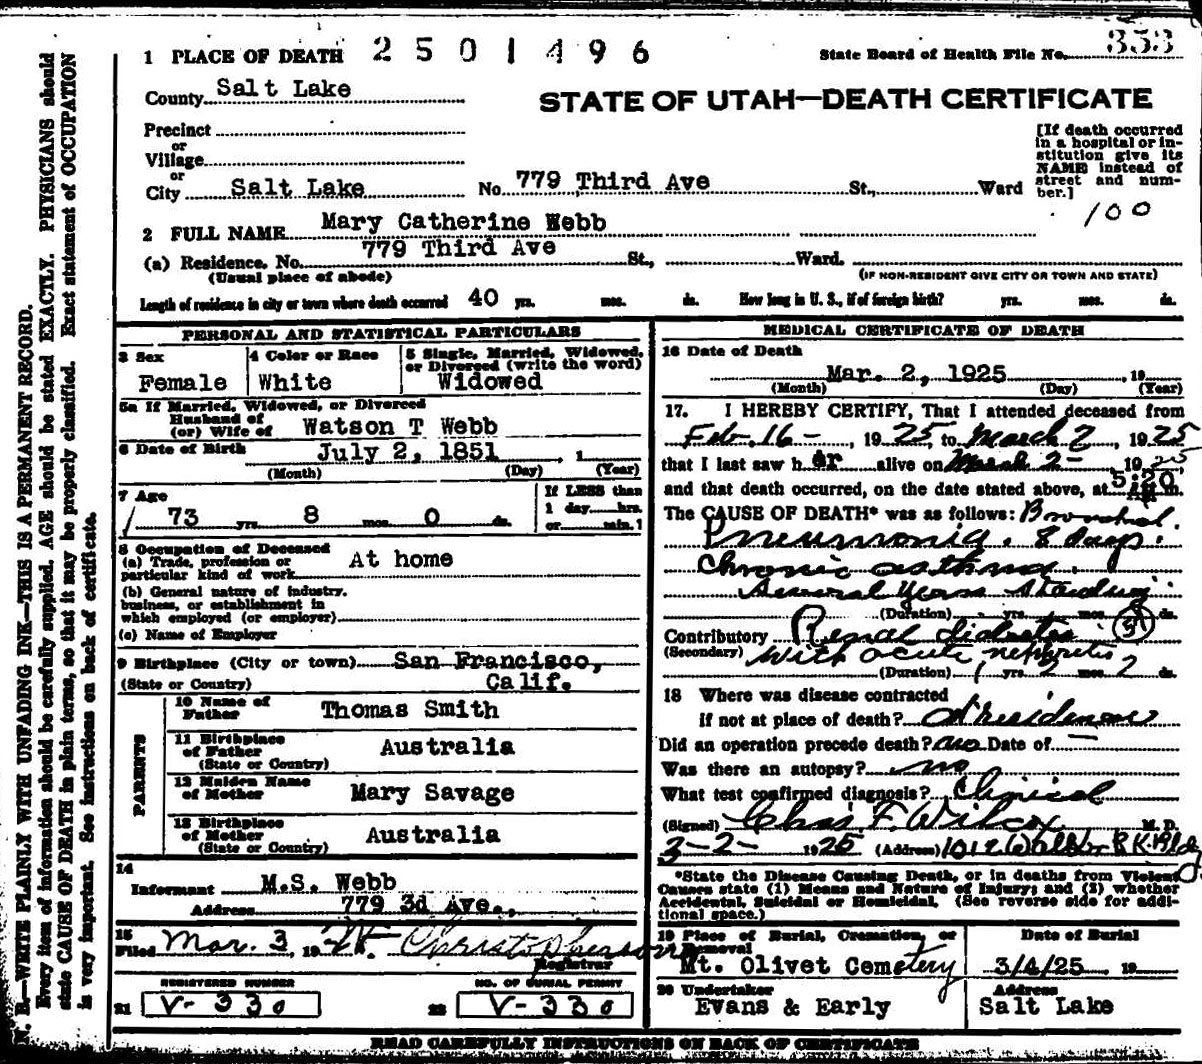 1 PLACE OF DEATH 2501496 State Board of Health File No. 353
County Salt Lake
STATE OF UTAH—DEATH CERTIFICATE
Precinct
or
Village
or
City Salt Lake No. 779 Third Ave St., Ward
[If death occurred
in a hospital or in-
stitution give its
NAME instead of
street and num-
ber.]
100
2 FULL NAME Mary Catherine Webb
(a) Residence. No. 779 Third Ave St., Ward.
(Usual place of abode) (IF NON-RESIDENT GIVE CITY OR TOWN AND STATE)
Length of residence in city or town where death occurred 40 yrs. mos. ds. How long in U. S., if of foreign birth? yrs. mos. ds.
PERSONAL AND STATISTICAL PARTICULARS
3 Sex
Female
4 Color or Race
White
5 Single, Married, Widowed,
or Divorced (write the word)
Widowed
5a If Married, Widowed, or Divorced
Husband of
(or) Wife of Watson T Webb
6 Date of Birth July 2, 1851, 1
(Month) (Day) (Year)
7 Age
73 yrs. 8 mos. 0 ds.
If LESS than
1 day, hrs.
or min.?
8 Occupation of Deceased
(a) Trade, profession or
particular kind of work At home
(b) General nature of industry,
business, or establishment in
which employed (or employer)
(c) Name of Employer
9 Birthplace (City or town) San Francisco,
(State or Country) Calif.
PARENTS
10 Name of
Father Thomas Smith
11 Birthplace
of Father Australia
(State or Country)
12 Maiden Name
of Mother Mary Savage
13 Birthplace
of Mother Australia
(State or Country)
14
Informant M.S. Webb
Address 779 3d Ave.,
15
Filed Mar. 3, 19
Registrar
REGISTERED NUMBER
21 V-330
NO. OF BURIAL PERMIT
22 V-330
MEDICAL CERTIFICATE OF DEATH
16 Date of Death
Mar. 2, 1925 19
(Month) (Day) (Year)
17. I HEREBY CERTIFY, That I attended deceased from
Feb. 16-, 1925, to March 2, 1925
that I last saw her alive on March 2-, 1925
and that death occurred, on the date stated above, at 5:20 m.
The CAUSE OF DEATH* was as follows: Bronchial
Pneumonia. 8 days.
Chronic asthma.
Several years standing
(Duration) yrs. mos. ds.
Contributory Renal diabetes
(Secondary) with acute nephritis
(Duration) 1 yrs. 2 mos. 2 ds.
18 Where was disease contracted
if not at place of death? at residence
Did an operation precede death? no Date of —
Was there an autopsy? no
What test confirmed diagnosis? Clinical
(Signed) Chas F. Wilcox M. D.
3-2- 1925 (Address) 1012 Walker BK. Bldg
*State the Disease Causing Death, or in deaths from Violent
Causes state (1) Means and Nature of Injury; and (2) whether
Accidental, Suicidal or Homicidal. (See reverse side for addi-
tional space.)
19 Place of Burial, Cremation, or
Removal
Mt. Olivet Cemetery
Date of Burial
3/4/25 19
20 Undertaker
Evans & Early
Address
Salt Lake
READ CAREFULLY INSTRUCTIONS ON BACK OF CERTIFICATE
N. B.—WRITE PLAINLY WITH UNFADING INK—THIS IS A PERMANENT RECORD.
Every item of information should be carefully supplied. AGE should be stated EXACTLY. PHYSICIANS should
state CAUSE OF DEATH in plain terms, so that it may be properly classified. Exact statement of OCCUPATION
is very important. See instructions on back of certificate.